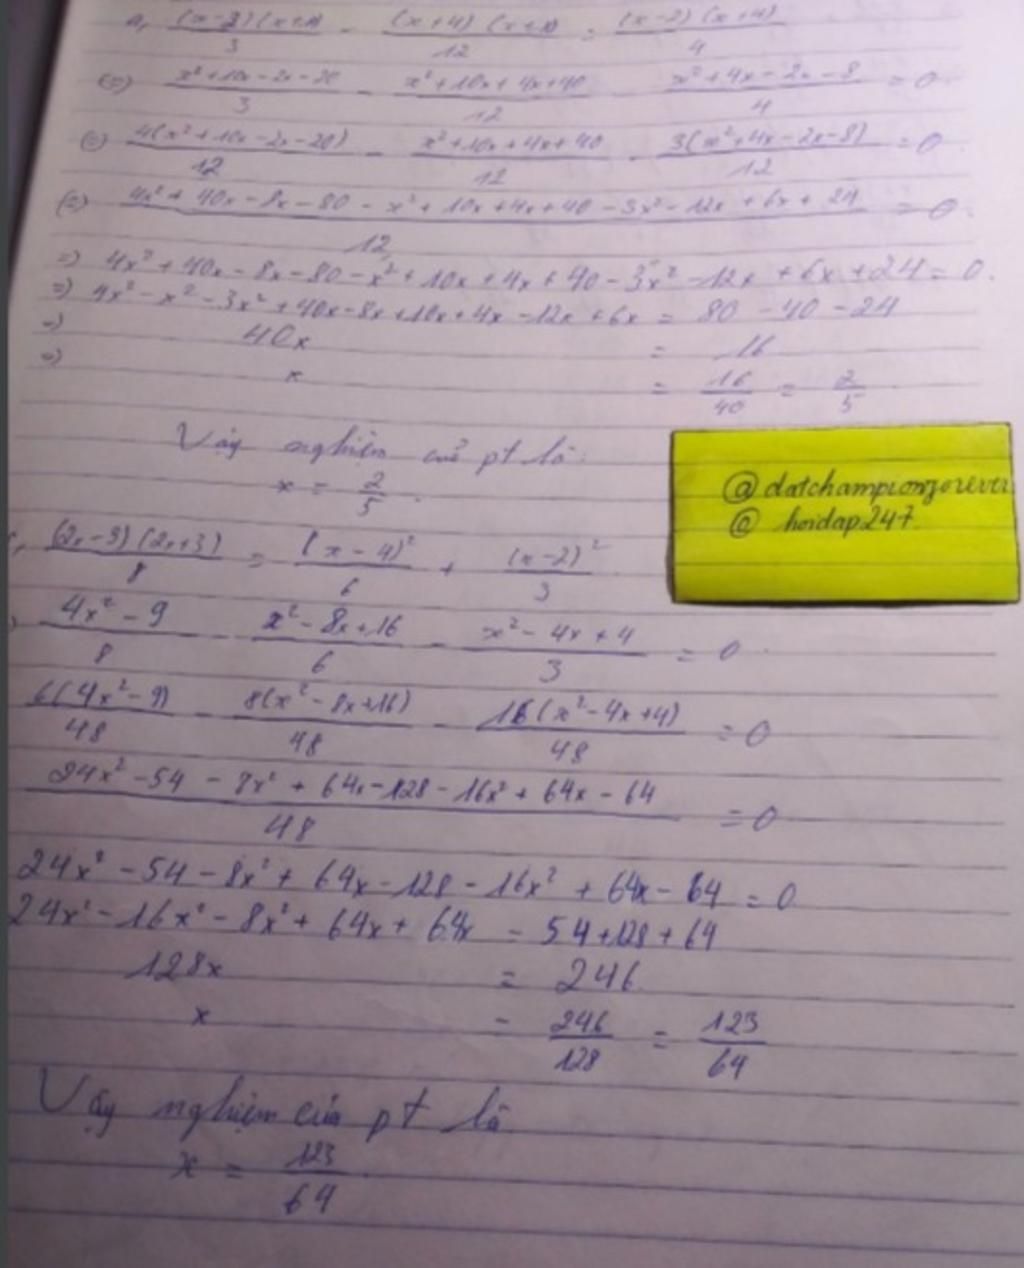 a, (x-2)(x+10)/3 - (x+4)(x+10)/12 = (x-2)(x+4)/4
(=) x²+10x-2x-20/3 - x²+10x+4x+40/12 - x²+4x-2x-8/4 = 0
(=) 4(x²+10x-2x-20)/12 - x²+10x+4x+40/12 - 3(x²+4x-2x-8)/12 = 0
(=) 4x²+40x-8x-80-x²+10x+4x+40-3x²-12x+6x+24/12 = 0
=) 4x²+40x-8x-80-x²+10x+4x+40-3x²-12x+6x+24 = 0.
=) 4x²-x²-3x²+40x-8x+10x+4x-12x+6x = 80-40-24
=) 40x = 16
=) x = 16/40 = 2/5
Vậy nghiệm củ pt là:
x = 2/5.
@datchampionforever
@ hoidap247.
(2x-3)(2x+3)/8 = (x-4)²/6 + (x-2)²/3
4x²-9/8 - x²-8x+16/6 - x²-4x+4/3 = 0
6(4x²-9)/48 - 8(x²-8x+16)/48 - 16(x²-4x+4)/48 = 0
24x²-54-8x²+64x-128-16x²+64x-64/48 = 0
24x²-54-8x²+64x-128-16x²+64x-64 = 0
24x²-16x²-8x²+64x+64x = 54+128+64
128x = 246
x = 246/128 = 123/64
Vậy nghiệm của pt là
x = 123/64